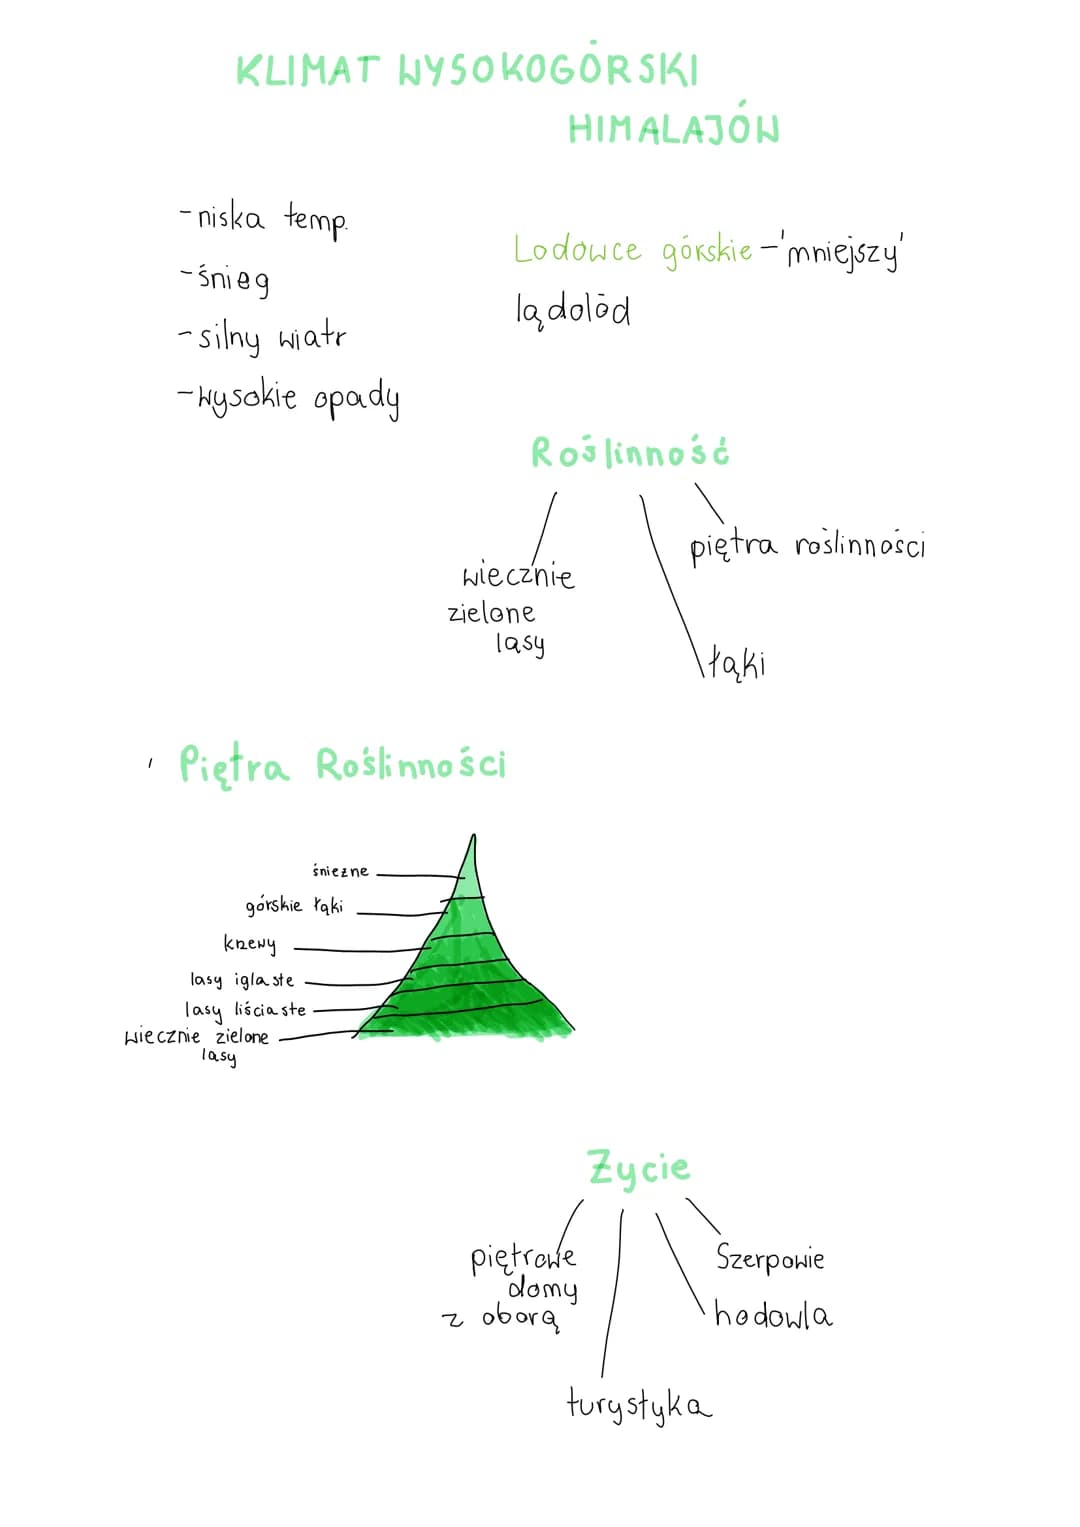 KLIMAT WYSOKOGÓRSKI
HIMALAJÓW
-niska temp.
-śnieg
-silny wiatr
-wysokie opady
Lodowce górskie -'mniejszy'
lądolód
Roślinność
wiecznie
zielone
lasy
piętra roślinności
łąki
Piętra Roślinności
śnieżne
górskie łąki
krzewy
lasy iglaste
lasy liściaste
wiecznie zielone
lasy
Życie
piętrowe
domy
z oborą
Szerpowie
hodowla
turystyka